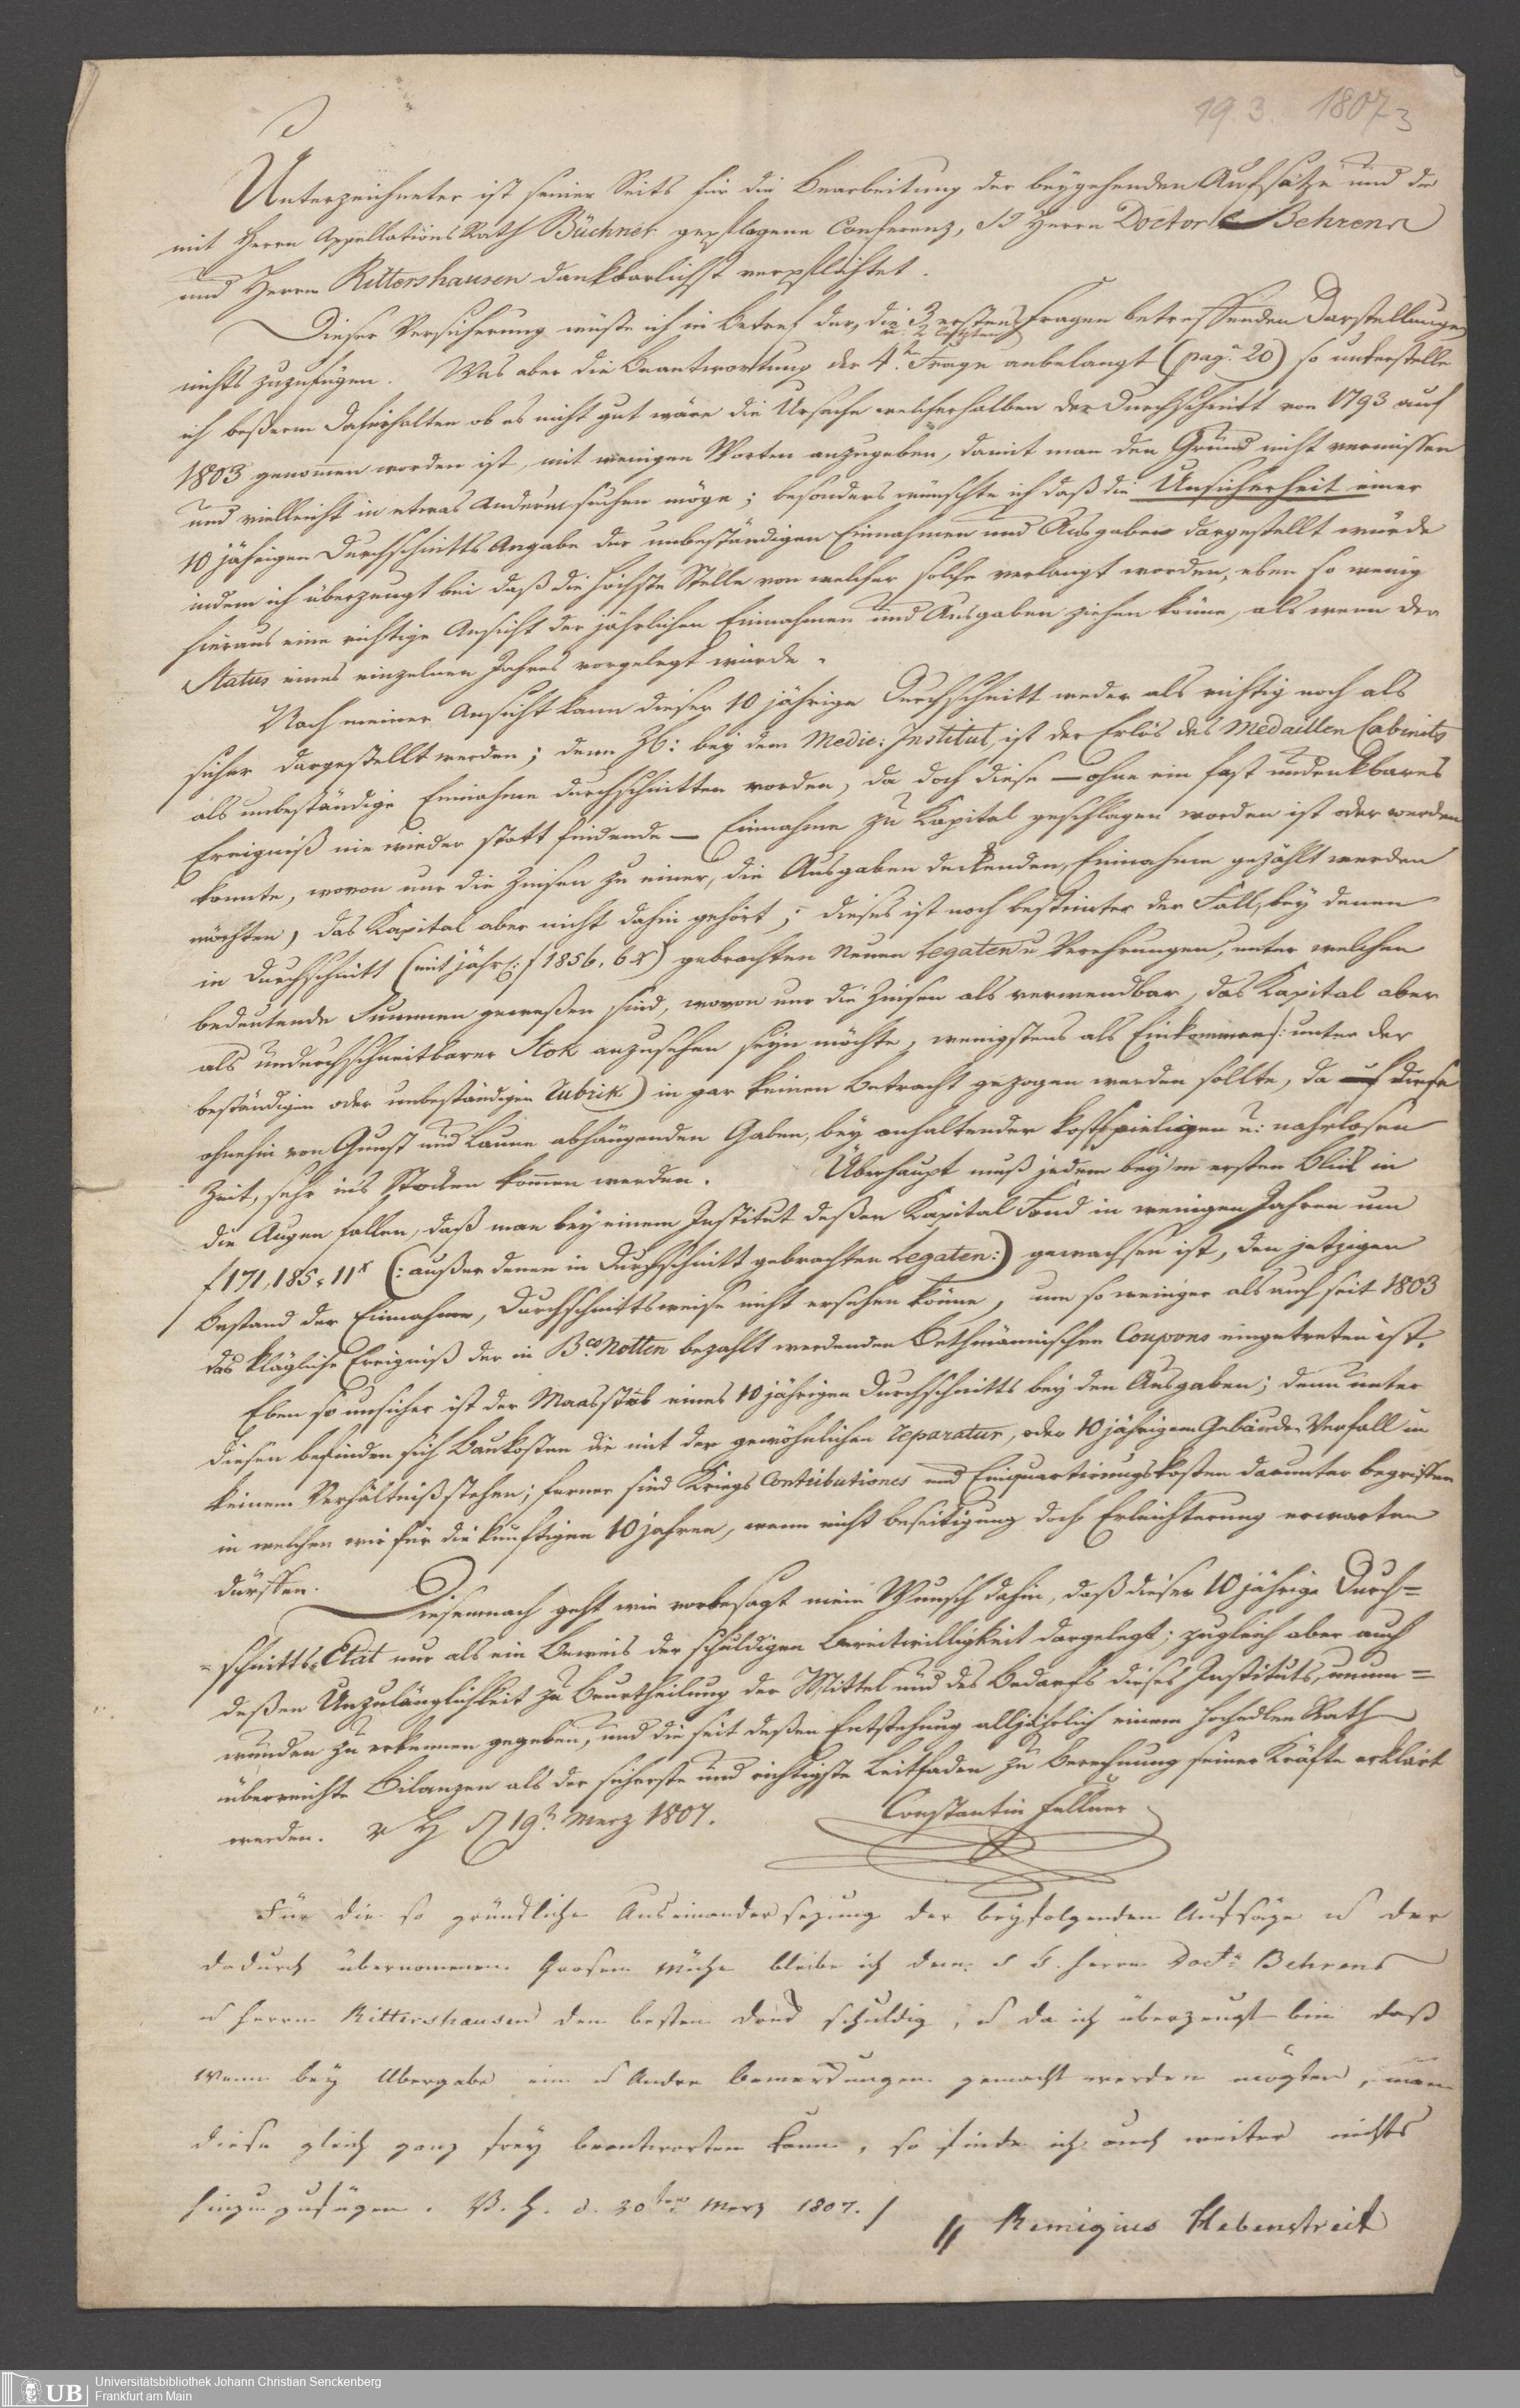 19. 3. 1807
3
Unterzeichneter ist seiner Seits für die Bearbeitung der beygehenden Aufsätze und der
mit Herrn AppellationsRath Büchner gepflogene Conferenz, Herrn Doctor Behrens
und Herrn Rittershausen dankbarlichst verpflichtet.
Dieser Versicherung wüßte ich in Betref der, die 3 ersten Fragen betreffenden Darstellungen
u. 2 letztern
nichts zuzufügen. Was aber die Beantwortung der 4n. Frage anbelangt (pag. 20) so unterstelle
ich beßerm Dafürhalten ob es nicht gut wäre die Ursache welcherhalben der Durchschnitt von 1793 auf
1803 genommen worden ist, mit wenigen Worten anzugeben, damit man den Grund nicht vermissen
und vielleicht in etwas Anderm suchen möge; besonders wünschte ich daß die Unsicherheit einer
10 jährigen Durchschnitts Angabe der unbeständigen Einnahmen und Ausgaben dargestellt würde
indem ich überzeugt bin daß die höchste Stelle von welcher solche verlangt worden, eben so wenig
hieraus eine richtige Ansicht der jährlichen Einnahmen und Ausgaben ziehen könne, als wenn der
Status eines einzelnen Jahres vorgelegt würde.
Nach meiner Ansicht kann dieser 10 jährige Durchschnitt weder als richtig noch als
sicher dargestellt werden; denn zb: bey dem Medic: Institut, ist der Erlös des Medaillen Cabinets
als unbeständige Einnahme durchschnitten worden, da doch diese — ohne ein fast undenkbares
Ereigniß nie wieder statt findende — Einnahme zu Kapital geschlagen worden ist oder werden
konnte, wovon nur die Zinsen zu einer, die Ausgaben deckenden, Einnahme gezählt werden
möchten, das Kapital aber nicht dahin gehört; dieses ist noch bestimter der Fall, bey denen
in Durchschnitt (mit jährl: f 1856. 6 x) gebrachten Neuen Legaten u Verehrungen, unter welchen
bedeutende Summen gewesen sind, wovon nur die Zinsen als verwendbar, das Kapital aber
als undurchschneitbarer Stok anzusehen seyn möchte, wenigstens als Einkommen (: unter der
beständigen oder unbeständigen Rubrik) in gar keinen Betracht gezogen werden sollte, da diese
ohnehin von Gunst und Laune abhängenden Gaben, bey anhaltender kostspieligen u: nahrlosen
Zeit, sehr ins Stocken kommen werden. Überhaupt muß jedem bey'm ersten Blick in
die Augen fallen, daß man bey einem Institut deßen Kapital Fond in wenigen Jahren um
f 171,185. 11 x (: außer denen in Durchschnitt gebrachten Legaten:) gewachsen ist, den jetzigen
Bestand der Einnahme, Durchschnittsweise nicht ersehen könne, um so weniger als auch seit 1803
das klägliche Ereigniß der in Bco. Notten bezahlt werdenden Bethmännischen Coupons eingetreten ist.
Eben so unsicher ist der Maasstab eines 10 jährigen Durchschnitts bey den Ausgaben; denn unter
diesen befinden sich Baukosten die mit der gewöhnlichen Reparatur, oder 10 jährigem Gebäude Verfall in
keinem Verhältniß stehen; ferner sind Kriegs Contributiones und Einquartirungskosten darunter begriffen
in welchen wir für die künftigen 10 jahren, wenn nicht Beseitigung doch Erleichterung erwarten
dürffen. Diesemnach geht wie vorbesagt mein Wunsch dahin, daß dieser 10 jährige Durch=
=schnitts=Etat nur als ein Beweis der schuldigen Bereitwilligkeit dargelegt; zugleich aber auch
deßen Unzulänglichkeit zu Beurtheilung der Mittel und des Bedarfs dieses Instituts, unum=
wunden zu erkennen gegeben, und die seit deßen Entstehung alljährlich einem Hochedlen Rath
überreichte Bilanzen als der sicherste und richtigste Leitfaden zu Berechnung seiner Kräfte erklärt
werden. V H d 19n. Merz 1807. Constantin Fellner
Für die so gründliche Auseinandersezung der beyfolgenden Aufsäze u der
dadurch übernomenen Grosen Mühe bleibe ich Herrn Doctr. Behrens
u Herrn Rittershausen den besten Dank schuldig, u da ich überzeugt bin daß
wenn bey Abergabe ein u Andre Bemerkungen gemacht werden mögten, man
diese gleich ganz frey beantworten kann, so finde ich auch weiter nichts
hinzuzufügen. V. H. d. 20ten Merz 1807. /
Remigius Hebenstreit
UB
Universitätsbibliothek Johann Christian Senckenberg
Frankfurt am Main